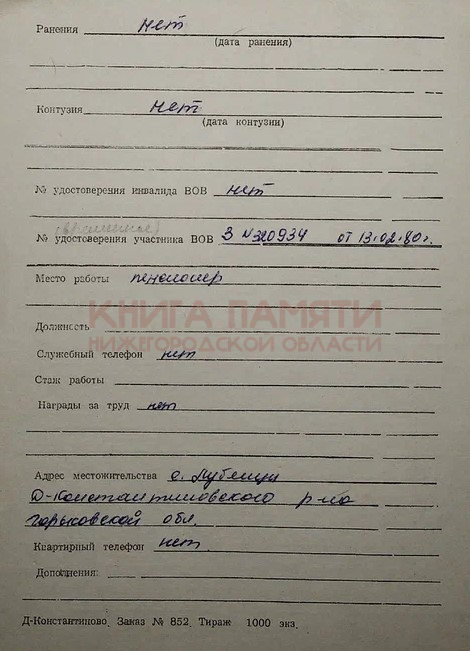 Ранения нет
(дата ранения)
Контузия нет
(дата контузии)
№ удостоверения инвалида ВОВ нет
(временное)
№ удостоверения участника ВОВ З №320934 от 13.02.80г.
Место работы пенсионер
КНИГА ПАМЯТИ
НИЖЕГОРОДСКОЙ ОБЛАСТИ
Должность
Служебный телефон нет
Стаж работы
Награды за труд нет
Адрес местожительства с.
Д-Константиновского р-на
Горьковской обл.
Квартирный телефон нет.
Дополнения:
Д-Константиново. Заказ № 852. Тираж 1000 экз.